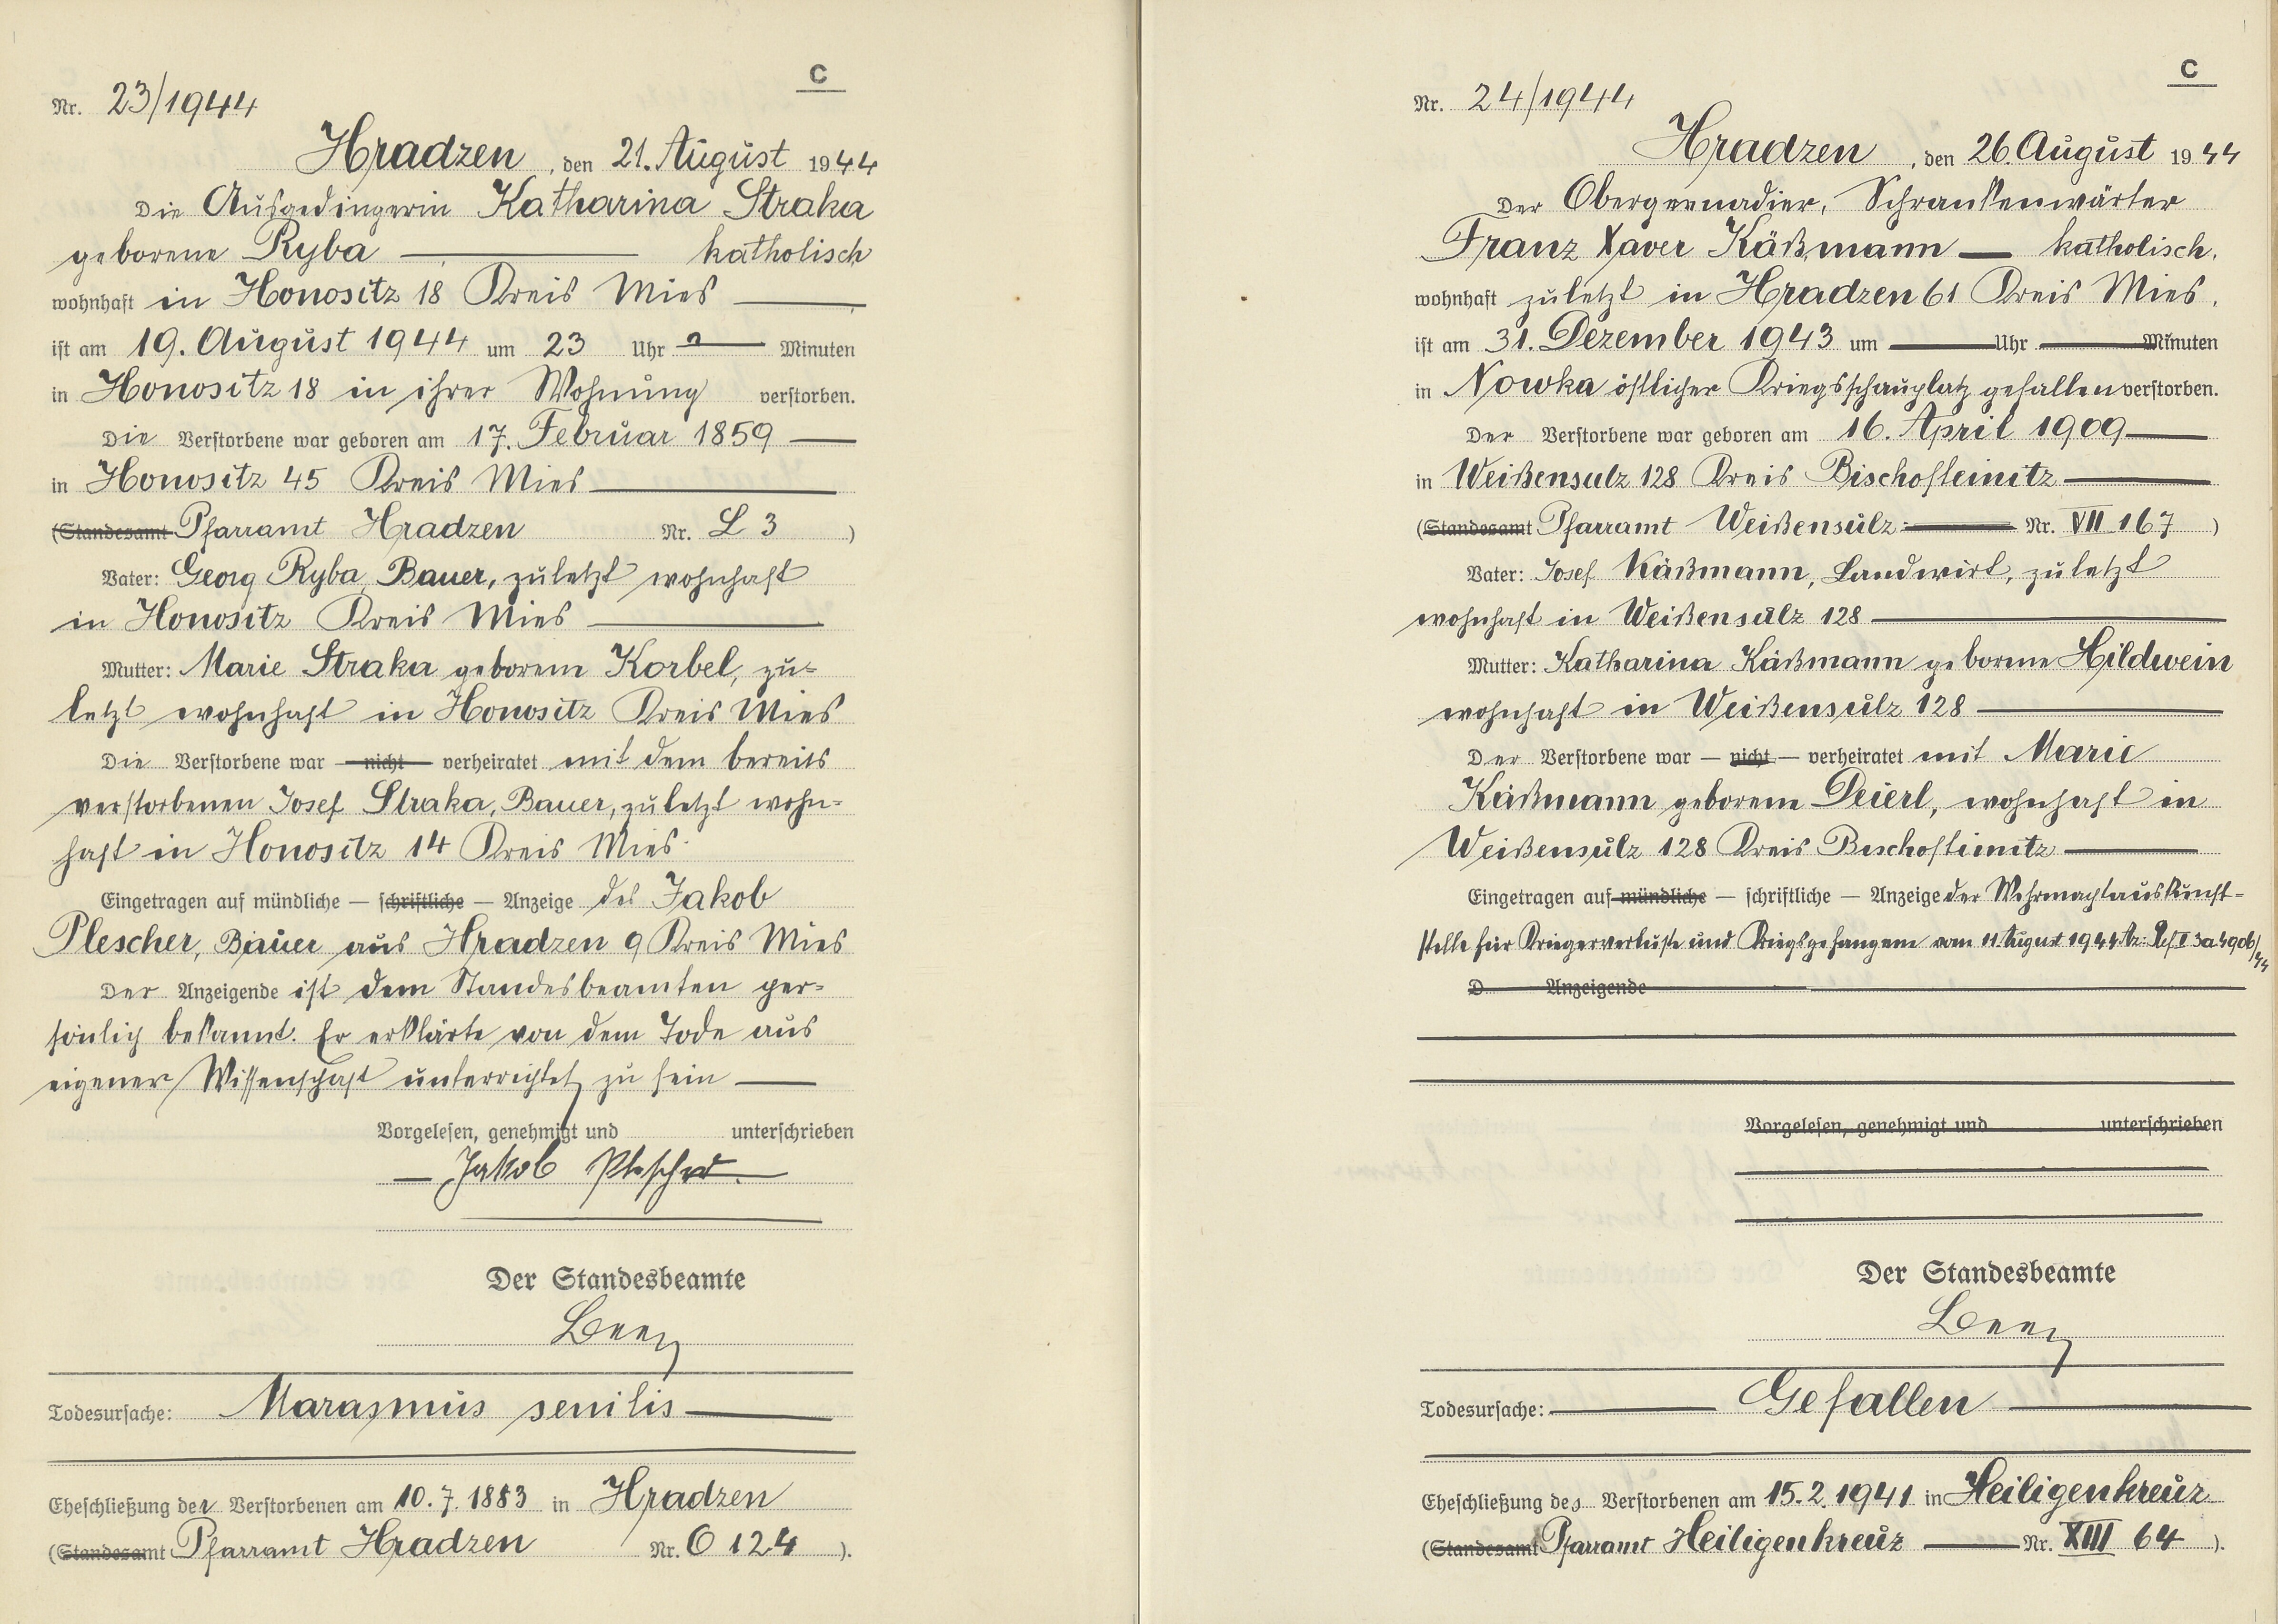 C
Nr. 23/1944
Hradzen, den 21. August 1944
Die Ausgedingerin Katharina Straka
geborene Ryba — katholisch
wohnhaft in Honositz 18 Kreis Mies —
ist am 19. August 1944 um 23 Uhr — Minuten
in Honositz 18 in ihrer Wohnung verstorben.
Die Verstorbene war geboren am 17. Februar 1859 —
in Honositz 45 Kreis Mies —
(Standesamt Pfarramt Hradzen Nr. L 3)
Vater: Georg Ryba, Bauer, zuletzt wohnhaft
in Honositz Kreis Mies —
Mutter: Marie Straka geborene Korbel, zu-
letzt wohnhaft in Honositz Kreis Mies
Die Verstorbene war — nicht — verheiratet mit dem bereits
verstorbenen Josef Straka, Bauer, zuletzt wohn-
haft in Honositz 14 Kreis Mies.
Eingetragen auf mündliche — schriftliche — Anzeige des Jakob
Plescher, Bauer aus Hradzen 9 Kreis Mies
Der Anzeigende ist dem Standesbeamten per-
sönlich bekannt. Er erklärte von dem Tode aus
eigener Wissenschaft unterrichtet zu sein —
Vorgelesen, genehmigt und unterschrieben
— Jakob Plescher —
Der Standesbeamte
Todesursache: Marasmus senilis —
Eheschließung der Verstorbenen am 10.7.1883 in Hradzen
(Standesamt Pfarramt Hradzen Nr. O 124).
C
Nr. 24/1944
Hradzen, den 26. August 1944
Der Obergrenadier, Schrankenwärter
Franz Xaver Käßmann — katholisch,
wohnhaft zuletzt in Hradzen 61 Kreis Mies,
ist am 31. Dezember 1943 um — Uhr — Minuten
in Nowka östlicher Kriegsschauplatz gefallen verstorben.
Der Verstorbene war geboren am 16. April 1909 —
in Weißensulz 128 Kreis Bischofteinitz —
(Standesamt Pfarramt Weißensulz — Nr. VII 167)
Vater: Josef Käßmann, Landwirt, zuletzt
wohnhaft in Weißensulz 128 —
Mutter: Katharina Käßmann geborene Hildwein
wohnhaft in Weißensulz 128 —
Der Verstorbene war — nicht — verheiratet mit Marie
Käßmann geborene Deierl, wohnhaft in
Weißensulz 128 Kreis Bischofteinitz —
Eingetragen auf mündliche — schriftliche — Anzeige der Wehrmachtauskunft-
stelle für Kriegerverluste und Kriegsgefangene vom 11 August 1944 Az: Ref. II 3a 490b/44
D — Anzeigende
Vorgelesen, genehmigt und unterschrieben
Der Standesbeamte
Todesursache: — Gefallen —
Eheschließung des Verstorbenen am 15.2.1941 in Heiligenkreuz
(Standesamt Pfarramt Heiligenkreuz — Nr. XIII 64).